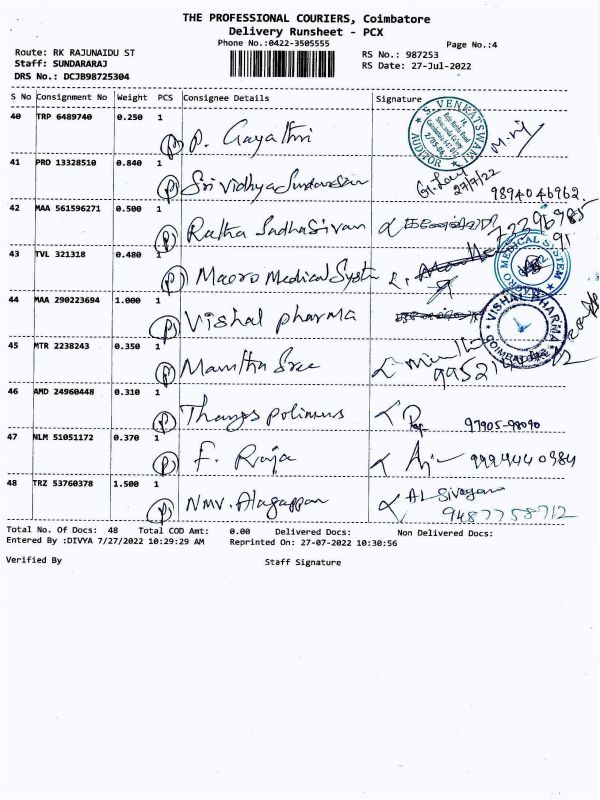 THE PROFESSIONAL COURIERS, Coimbatore
Delivery Runsheet - PCX
Phone No.:0422-3505555
Page No.:4
Route: RK RAJUNAIDU ST
Staff: SUNDARARAJ
DRS No.: DCJB98725304
RS No.: 987253
RS Date: 27-Jul-2022
S No Consignment No Weight PCS Consignee Details Signature
40 TRP 6489740 0.250 1 P. Gayathri
S. VENKATSWAMI
AUDITOR
41 PRO 13328510 0.840 1 Sri Vidhya Sundaresan 27/7/22 9894046962.
42 MAA 561596271 0.500 1 Ratha Sadha Sivan
43 TVL 321318 0.480 1 Macro Medical Systm
MACRO MEDICAL SYSTEM
44 MAA 290223694 1.000 1 Vishal pharma
VISHAL PHARMA
COIMBATORE
45 MTR 2238243 0.350 1 Mamitha Sree
46 AMD 24960448 0.310 1 Thangs polimers 97905-98090
47 NLM 51051172 0.370 1 F. Raja 9994440984
48 TRZ 53760378 1.500 1 NMV. Alagappan AL Sivagami
9487758712
Total No. Of Docs: 48 Total COD Amt: 0.00 Delivered Docs: Non Delivered Docs:
Entered By :DIVYA 7/27/2022 10:29:29 AM Reprinted On: 27-07-2022 10:30:56
Verified By Staff Signature